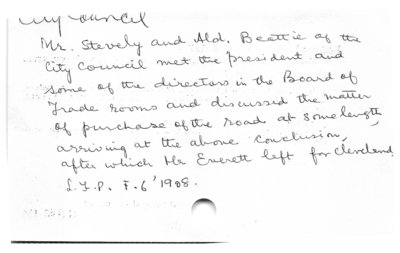 City Council
Mr. Stevely and Ald. Beattie of the
City Council met the president and
some of the directors in the Board of
Trade rooms and discussed the matter
of purchase of the road at some length
arriving at the above conclusion,
after which Mr Everett left for Cleveland.
L.F.P. F. 6' 1908.